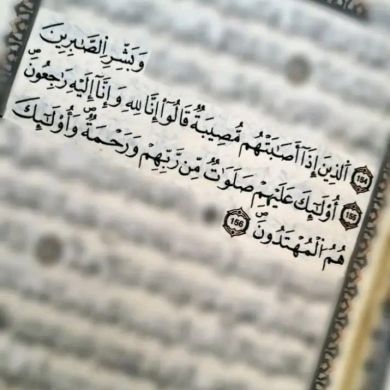 وَبَشِّرِ الصَّٰبِرِينَ
154 الَّذِينَ إِذَا أَصَٰبَتْهُم مُّصِيبَةٌ قَالُوا إِنَّا لِلهِ وَإِنَّا إِلَيْهِ رَٰجِعُونَ
155 أُوْلَٰئِكَ عَلَيْهِمْ صَلَوَٰتٌ مِّن رَّبِّهِمْ وَرَحْمَةٌ وَأُوْلَٰئِكَ
هُمُ الْمُهْتَدُونَ 156